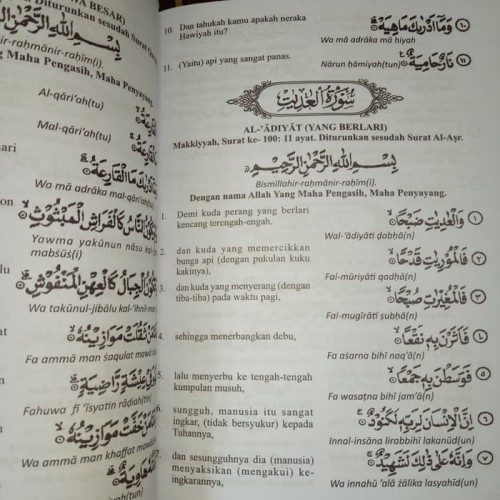 WA BESAR)
Diturunkan sesudah Surat
بِسْمِ اللّٰهِ الرَّحْمٰنِ الرَّحِيْمِ
-rahmānir-rahīm(i).
Maha Pengasih, Maha Penyayang.
Al-qāri'ah(tu)
مَا الْقَارِعَةُ
Mal-qāri'ah(tu)
وَمَآ اَدْرٰىكَ مَا الْقَارِعَةُ
Wa mā adrāka mal-qāri'ah
النَّاسُ كَالْفَرَاشِ الْمَبْثُوْثِ
Yawma yakūnun nāsu kal-
mabśūś(i)
وَتَكُوْنُ الْجِبَالُ كَالْعِهْنِ الْمَنْفُوْشِ
Wa takūnul-jibālu kal-'ihnil-man
ثَقُلَتْ مَوَازِيْنُهٗ
Fa ammā man śaqulat mawā
فِيْ عِيْشَةٍ رَّاضِيَةٍ
Fahuwa fī 'īsyatin rāḍiah(tin)
خَفَّتْ مَوَازِيْنُهٗ
Wa ammā man khaffat mawā
هَاوِيَةٌ
10. Dan tahukah kamu apakah neraka
Hawiyah itu?
وَمَآ اَدْرٰىكَ مَا هِيَهْ ١٠
Wa mā adrāka mā hiyah
11. (Yaitu) api yang sangat panas.
نَارٌ حَامِيَةٌ ١١
Nārun ḥāmiyah(tun)
سُوْرَةُ الْعٰدِيٰتِ
AL-'ĀDIYĀT (YANG BERLARI)
Makkiyyah, Surat ke- 100: 11 ayat. Diturunkan sesudah Surat Al-Aṣr.
بِسْمِ اللّٰهِ الرَّحْمٰنِ الرَّحِيْمِ
Bismillahir-raḥmānir-raḥīm(i).
Dengan nama Allah Yang Maha Pengasih, Maha Penyayang.
1. Demi kuda perang yang berlari
kencang terengah-engah,
وَالْعٰدِيٰتِ ضَبْحًا ١
Wal-'ādiyāti ḍabḥā(n)
2. dan kuda yang memercikkan
bunga api (dengan pukulan kuku
kakinya),
فَالْمُوْرِيٰتِ قَدْحًا ٢
Fal-mūriyāti qadḥā(n)
3. dan kuda yang menyerang (dengan
tiba-tiba) pada waktu pagi,
فَالْمُغِيْرٰتِ صُبْحًا ٣
Fal-mugīrāti ṣubḥā(n)
4. sehingga menerbangkan debu,
فَاَثَرْنَ بِهٖ نَقْعًا ٤
Fa aśarna bihī naq'ā(n)
5. lalu menyerbu ke tengah-tengah
kumpulan musuh,
فَوَسَطْنَ بِهٖ جَمْعًا ٥
Fa wasaṭna bihī jam'ā(n)
sungguh, manusia itu sangat
ingkar, (tidak bersyukur) kepada
Tuhannya,
اِنَّ الْاِنْسَانَ لِرَبِّهٖ لَكَنُوْدٌ ٦
Innal-insāna lirabbihī lakanūd(un)
dan sesungguhnya dia (manusia)
menyaksikan (mengakui) ke-
ingkarannya,
وَاِنَّهٗ عَلٰى ذٰلِكَ لَشَهِيْدٌ ٧
Wa innahū 'alā żālika lasyahīd(un)